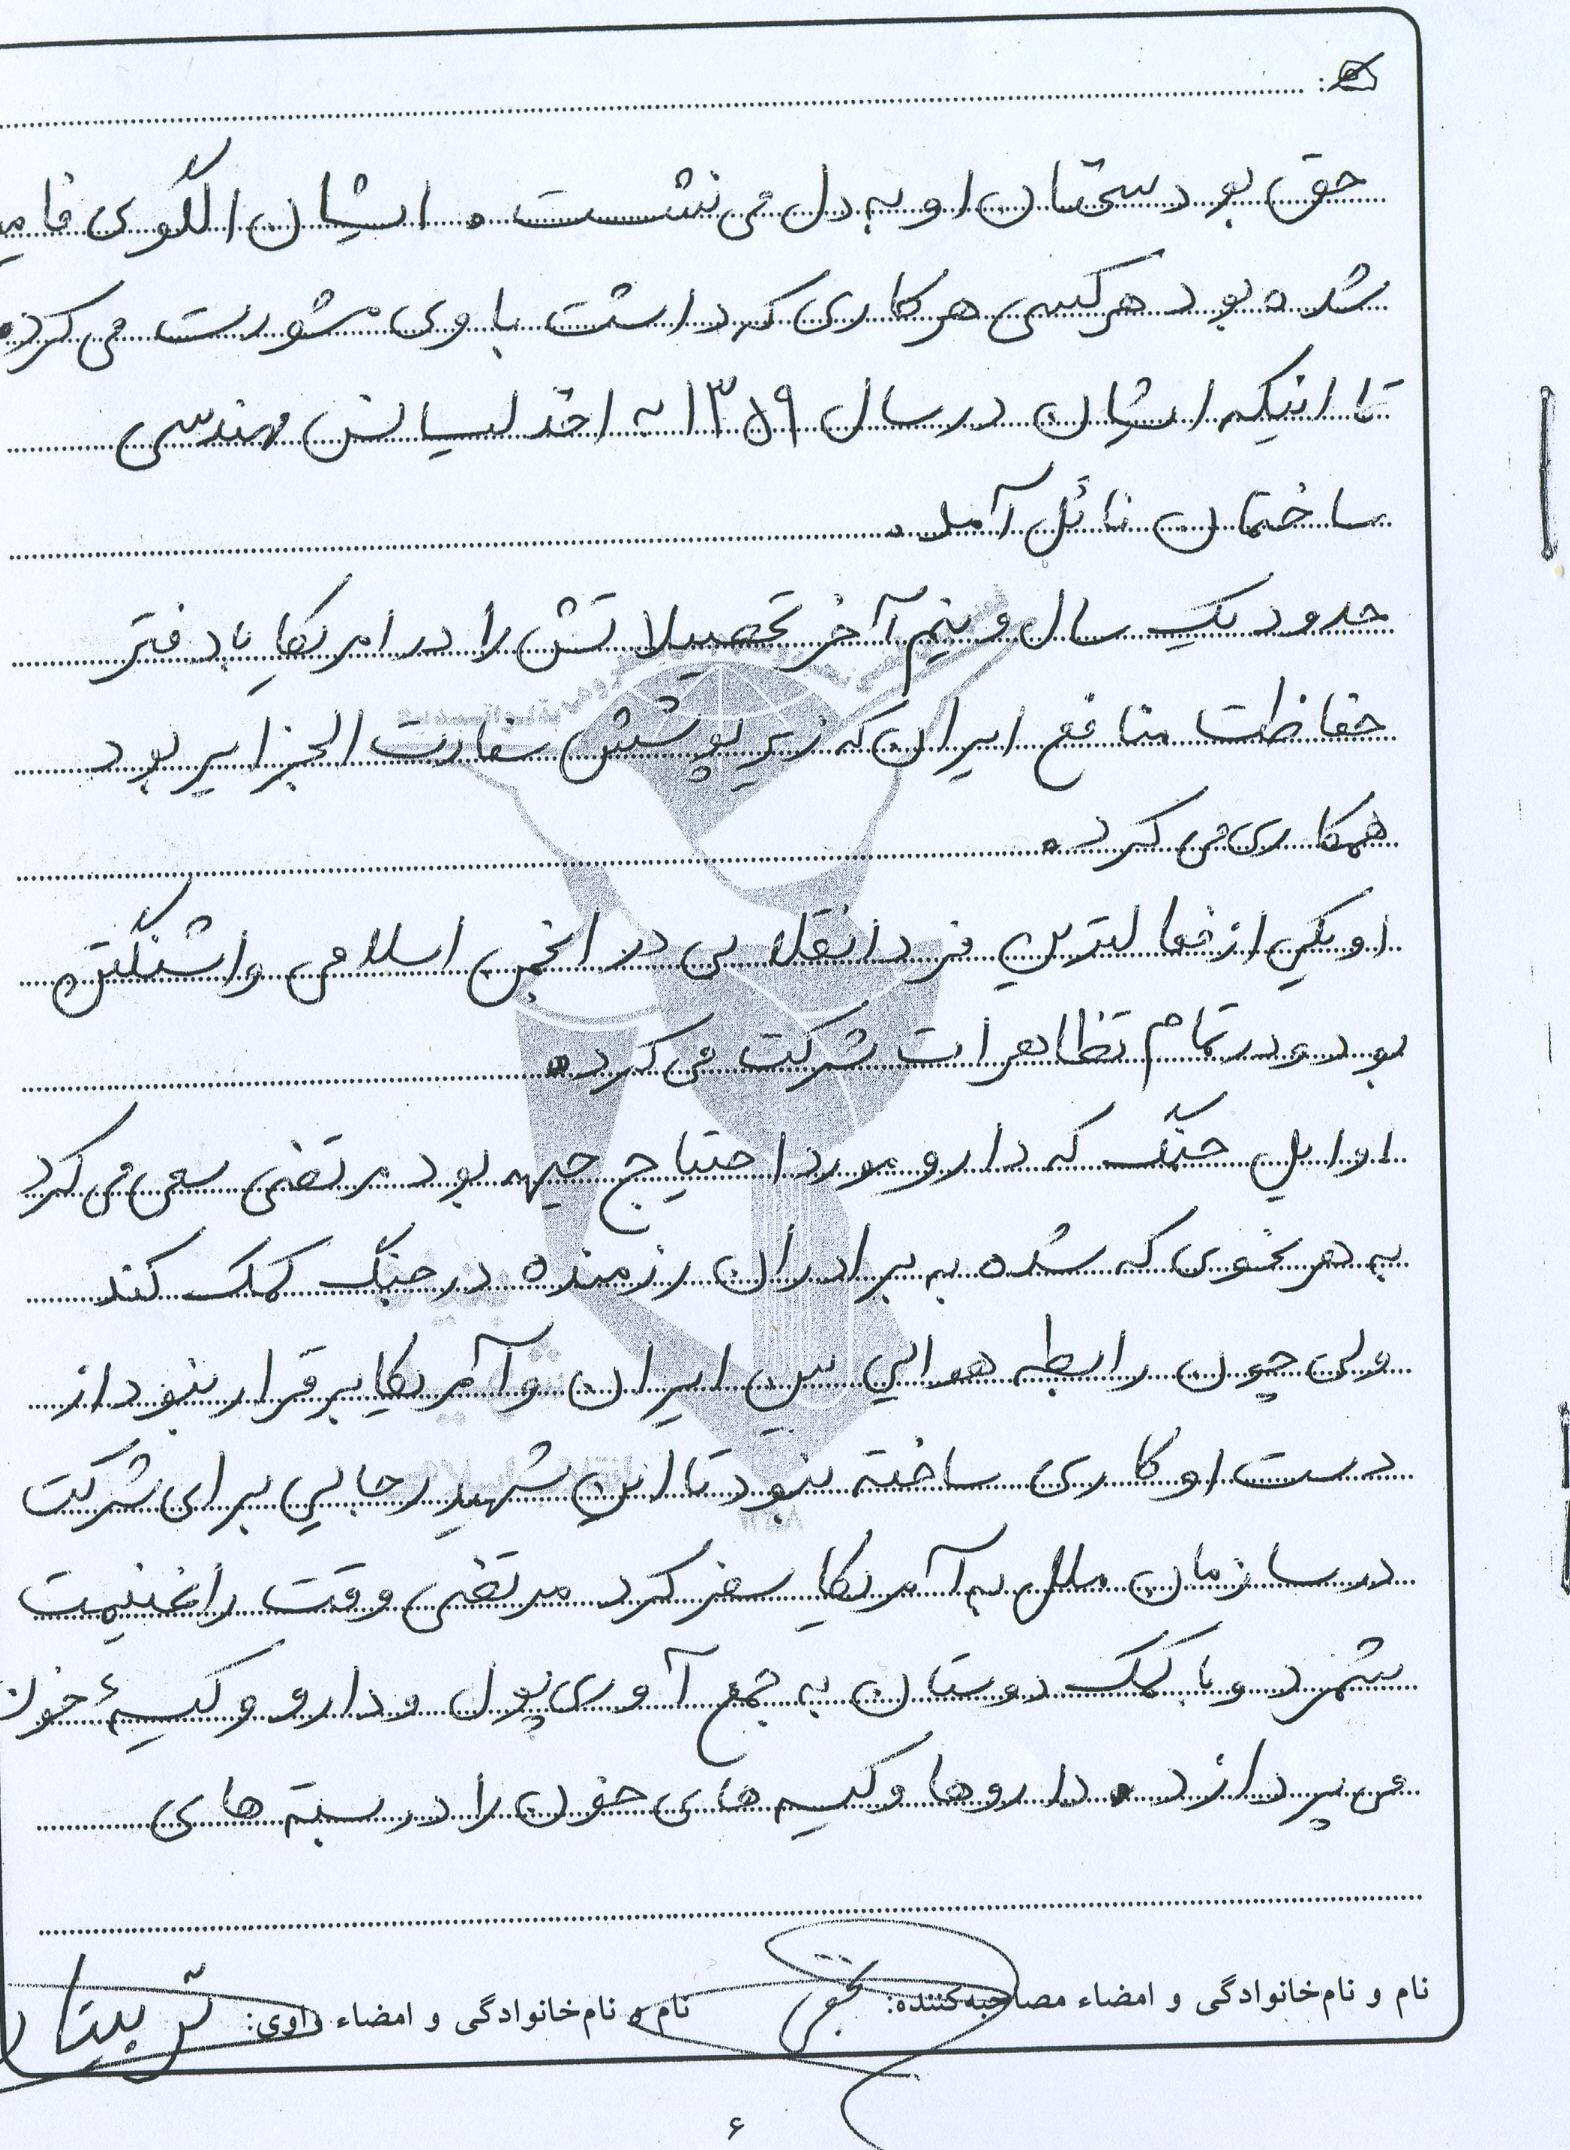 حق بود سخنان او به دل می نشست. ایشان الگوی
شده بود هرکسی هرکاری که داشت با وی مشورت می کرد.
تا اینکه ایشان در سال ۱۳۵۹ به اخذ لیسانس مهندسی
ساختمان نائل آمد.
حدود یک سال و نیم آخر تحصیلاتش را در امریکا با دفتر
حفاظت منافع ایران که زیر پوشش سفارت الجزایر بود
همکاری می کرد.
او یکی از فعالترین فرد انقلابی در انجمن اسلامی واشنگتن
بود و در تمام تظاهرات شرکت می کرد.
اوایل جنگ که دارو مورد احتیاج جبهه بود مرتضی سعی می کرد
به هر نحوی که شده به برادران رزمنده در جنگ کمک کند
ولی چون رابطه هوایی بین ایران و آمریکا برقرار نبود از
دست او کاری ساخته نبود تا این شهید رجایی برای شرکت
در سازمان ملل به آمریکا سفر کرد مرتضی وقت را غنیمت
شمرد و با کمک دوستان به جمع آوری پول و دارو و کیسهٔ خون
می پردازد. داروها و کیسه های خون را در بسته های
نام و نام‌خانوادگی و امضاء مصاحبه‌کننده:
نام و نام‌خانوادگی و امضاء راوی:
۶